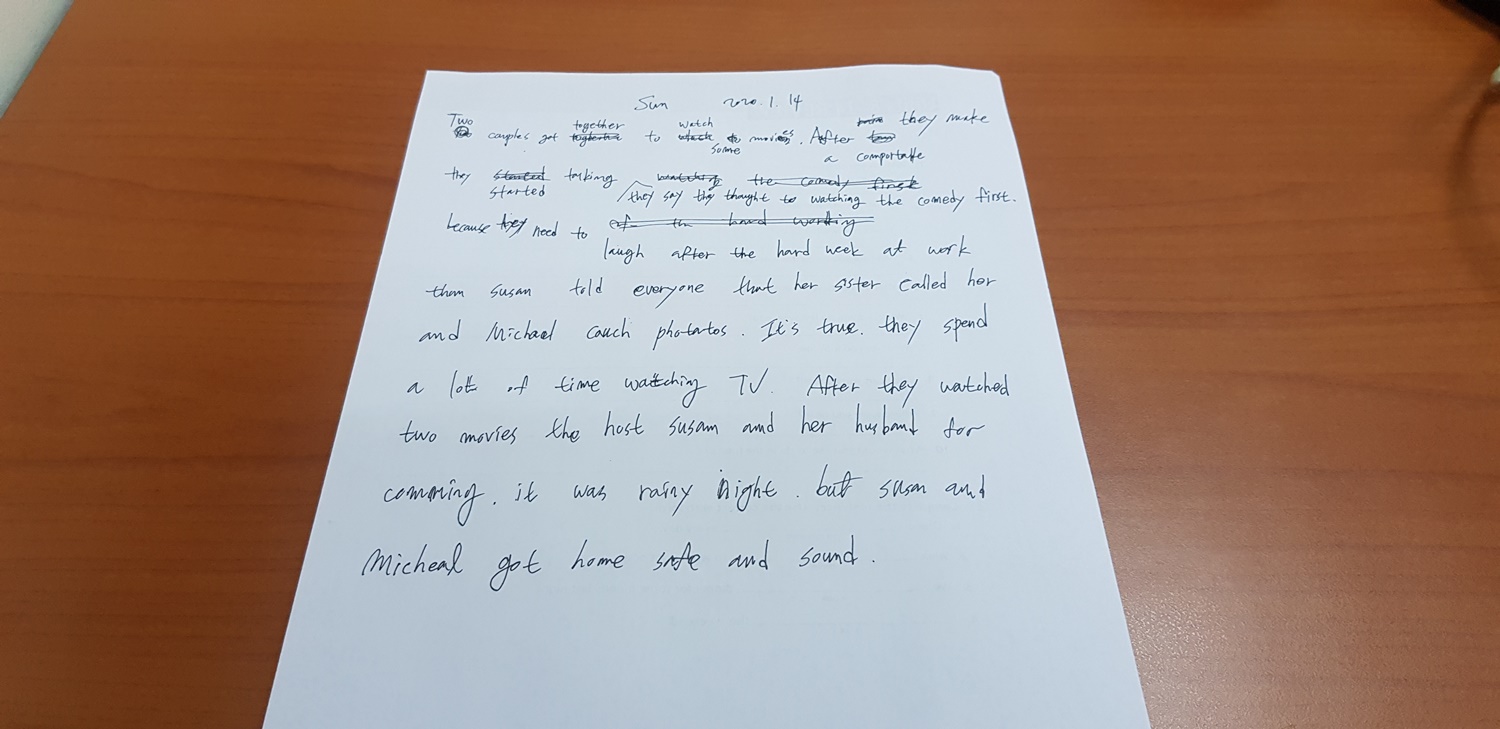 Sun 2020.1.14
Two couples got together to watch some movies. After they make
a comportable
they started talking they say they thought to watching the comedy first.
because they need to
laugh after the hard week at work
than susan told everyone that her sister called her
and Michael cauch photatos. It's true. they spend
a lot of time watching TV. After they watched
two movies the host susan and her husband for
comming. it was rainy night. but susan and
Micheal got home safe and sound.